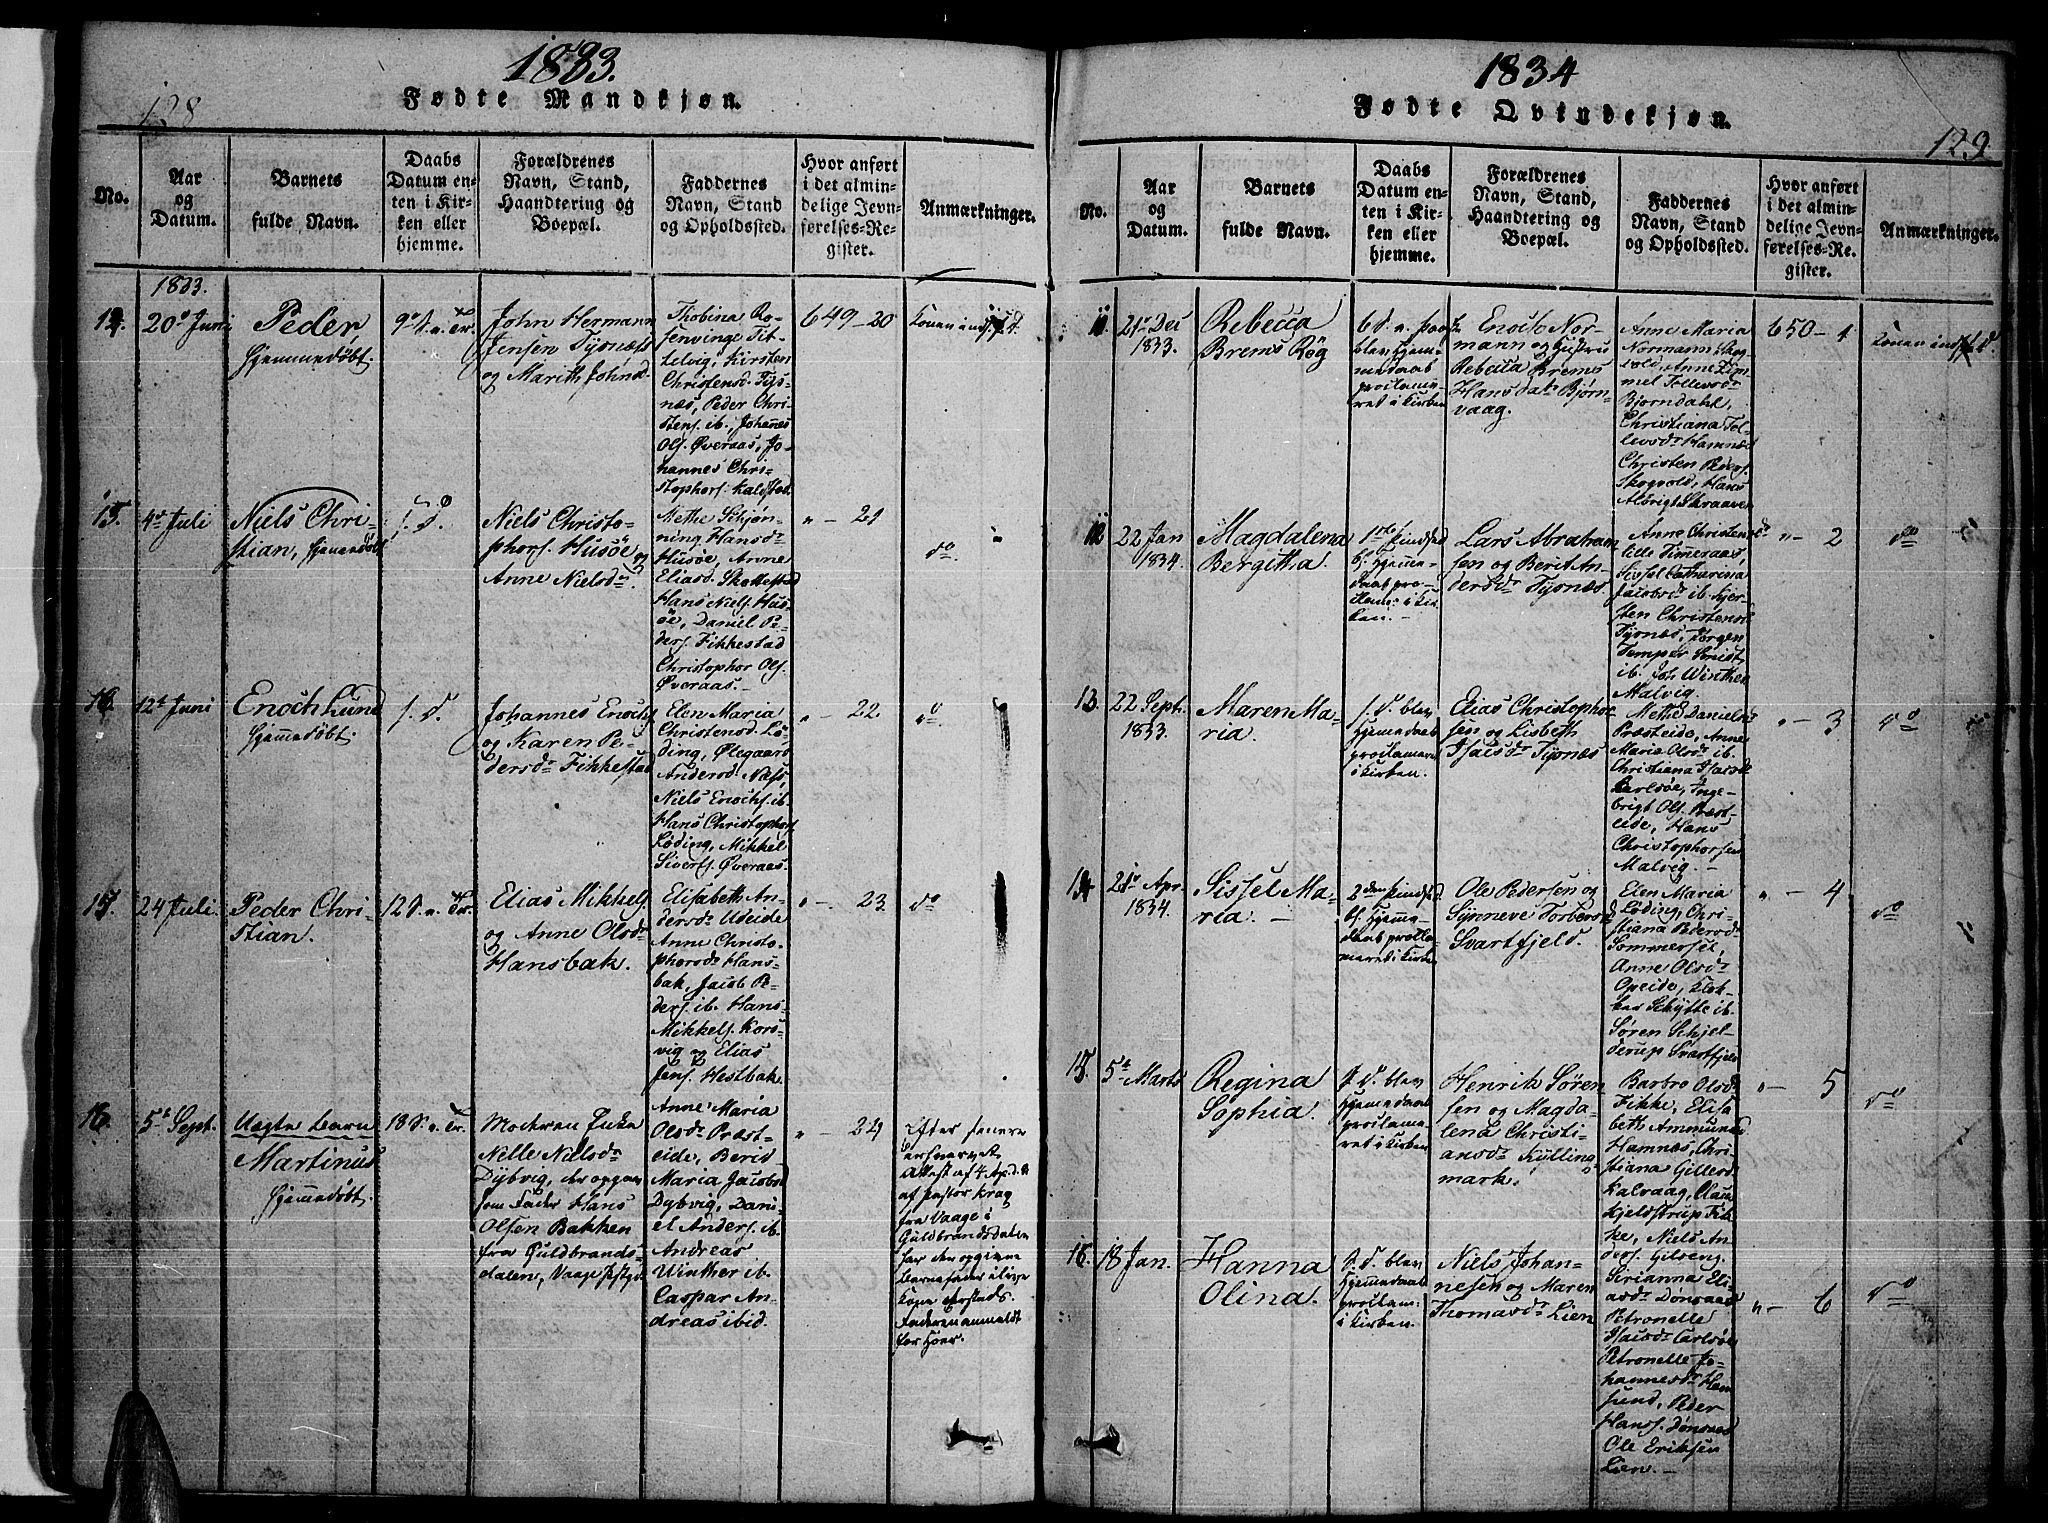 1833.
Fødte Mandkjøn.
128
No.
Aar
og
Datum.
Barnets
fulde Navn.
Daabs
Datum en-
ten i Kir-
ken eller
hjemme.
Forældrenes
Navn, Stand,
Haandtering og
Boepæl.
Faddernes
Navn, Stand
og Opholdssted.
Hvor anført
i det almin-
delige Jevn-
førelses-Re-
gister.
Anmærkninger.
1833.
14.
20de Juni
Peder
hjemmedøbt.
John Hermann
Jensen Tysnæs
og Marith Johnsd.
Thobina Ro-
senvinge Tit-
telvig, Kirsten
Christensd. Tys-
næs, Peder Chri-
stens. ib., Johanes
Ols. Øveraas, Jo-
hannes Chri-
stophers. Kaldstad.
649-20
Konen indf. d.
15.
4de Juli
Niels Chri-
stian, hjemmedøbt
Niels Christo-
phers. Husøe og
Anne Nielsdr.
Methe Schjøn-
ning Hansdr
Husøe, Anne
Eliasd.
Hans Niels. Hus-
øe, Daniel Pe-
ders. Fikkestad
Christophor Ols.
Øveraas.-
" - 21
do
16.
12te Juni
Enoch Lund
hjemmedøbt.
Johannes Enochs.
og Karen Pe-
dersdr Fikkestad
Elen Maria
Christensd. Lö-
ding, Ølegaard
Andersd. Næss,
Niels Enochs. ib.
Hans Christophers.
Løding, Mikkel
Siverts. Øveraas.
" - 22
do.
17.
24 Juli.
Peder Chri-
stian.
Elias Mikkels.
og Anne Olsdr
Hansbak.
Elisabeth An-
dersdr Udeide
Anne Christo-
phorsdr Hans-
bak, Jacob Pe-
ders. ib. Hans
Mikkels. Kors-
vig og Elias
Jens. Hestbak.
" - 23.
do
16.
5te Sept.
Uægte barn
Martinus
hjemmedøbt.
Moderen Enke
Nelle Nielsdr
Dybvig, der opgav
som Fader Hans
Olsen Bakken
fra Guldbrands-
dalen, Vaage Pstgd.
Anne Maria
Olsdr Præst-
eide, Berid
Maria Jacobsd
Dybvig, Dani-
el Anders. ib.
Andreas
Winther ib.
Caspar An-
dreas ibid.
" - 24
Efter senere
erhvervet
Attest af 4 Apr.
af Pastor Krag
fra Vaage i
Guldbrandsdalen
har den opgivne
Barnefader
Faderen anmeldt
for Hoer.
1834
Fødte Qvindekjøn.
129
No.
Aar
og
Datum.
Barnets
fulde Navn.
Daabs
Datum en-
ten i Kir-
ken eller
hjemme.
Forældrenes
Navn, Stand,
Haandtering og
Boepæl.
Faddernes
Navn, Stand
og Opholdssted.
Hvor anført
i det almin-
delige Jevn-
førelses-Re-
gister.
Anmærkninger.
11.
21de Dec
1833.
Rebecca
Brems Røg
blev hjem-
medaab
proclame-
ret i Kirken
Enoch Nor-
mann og Hustru
Rebecca Brems
Hansdatr Bjørn-
vaag.
Anne Maria
Normann Skog-
vold, Anne Kim-
mel Tollevsdr
Bjorndahl,
Christiana Tol-
levsdr Hamnæs
Christen Peders.
Skogvold, Hans
Albrigt Skraaven
650-1
Konen indf. d.
12
22 Jan
1834.
Magdalena
Bergitha.
1ste Pindsed
bl. hjemme-
daab pro-
clame: i Kir-
ken.-
Lars Abraham-
sen og Berit An-
dersdr Tysnæs.
Anne Christens-
Sissel Catharina
Jacobsdr ib. Kjer-
sten Christens.
Tysnæs, Jørgen
Temper Smidt
ib. Joh. Winther
Malvig.
" - 2
do
13.
22 Sept.
1833.
Maren Ma-
ria.
s. d. blev
hjemmedaab
proclameret
i Kirken.
Elias Christopher-
sen og Lisbeth
Isaksdr Tysnæs
Methe Daniels.
Præsteide, Anne
Maria Olsdr ib.
Christiana Isacsdr
Karlsøe, Inge-
brigt Ols. Præst-
eide, Hans
Christophersen
Malvig.
" - 3
do
14
21de Apr.
1834.
Sissel Ma-
ria. -
2den Pindsed
bl. hjemme-
daab procla-
meret i Kirken
Ole Pedersen og
Synneve Torbersd
Svartfjeld.
Elen Maria
Løding, Chri-
stiana Pedersdr
Sommerset,
Anne Olsdr
Opeide, Klok-
ker Schytte ib.
Søren Schjel-
derup Svartfjeld
" - 4
do
15.
5te Marts
Regina
Sophia.
s. d. blev
hjemmedaab
proclame-
ret i Kirken
Henrik Søren-
sen og Magda-
lena Christi-
ansdr Kylling-
mark.
Barbro Olsdr
Fikke, Elisa-
beth Ammunds
Hamnæs, Chri-
stiana Gillesd
Kalvaag, Claus
Kjeldstrup Fik-
ke, Niels An-
ders. Gilseng.
" - 5
do
16.
18 Jan.
Hanna
Olina.
s. d. blev
hjemmedaab
proclam:
i Kirken.
Niels Johan-
nesen og Maren
Thomasdr Lien
Sirianna Eli-
asdr Dønsaas
Petronelle
Isacsdr Carlsöe
Petronelle Jo-
hannesdr Ham-
sund, Peder
Hans. Dønsaas
Ole Eriksen
Lien. -
" - 6
do